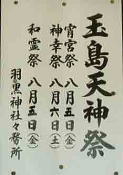 玉島天神祭
宵宮祭 八月五日(金)
神幸祭 八月六日(土)
和霊祭 八月五日(金)
羽黒神社々務所